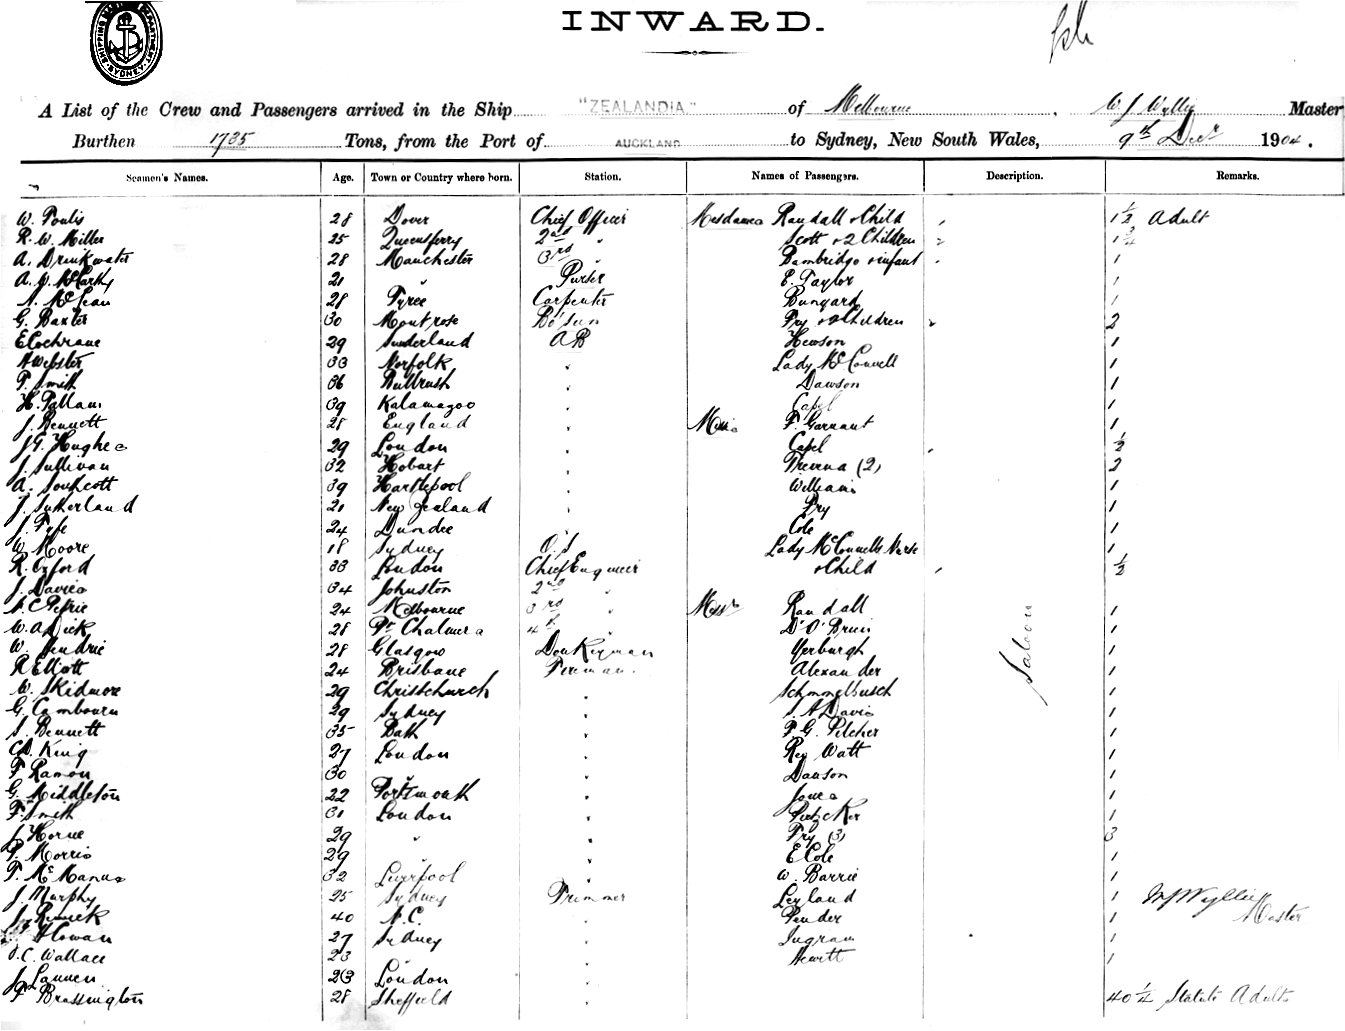 SHIPPING MASTER'S DEPARTMENT SYDNEY
INWARD.
A List of the Crew and Passengers arrived in the Ship "ZEALANDIA" of Melbourne, W J Wyllie Master
Burthen 1735 Tons, from the Port of AUCKLAND to Sydney, New South Wales, 9th Decr 1904.
Seamen's Names. Age. Town or Country where born. Station. Names of Passengers. Description. Remarks.
W. Foulis 28 Dover Chief Officer Mesdames Randall & Child 1 1/2 Adult
R. W. Miller 25 Queensferry 2nd " Scott & 2 Children 1 3/4
A. Drinkwater 28 Manchester 3rd " Bambridge & infant 1
A. McCarthy 21 " Purser E. Taylor 1
N. McLean 28 Tyree Carpenter Bungard 1
G. Baxter 30 Montrose Bo'sun Fry & 2 Children 2
E Cochrane 29 Sunderland AB Hewson 1
A Webster 33 Norfolk " Lady McConnell 1
P. Smith 36 " Dawson 1
H. Pallam 39 Kalamazoo " Capel 1
J. Bennett 28 England " Miss F. Garrant 1
J G. Hughes 29 London " Capel 1/2
J. Sullivan 32 Hobart " Trevena (2) 2
A. Southcott 39 Hartlepool " Williams 1
J. Sutherland 21 New Zealand " Fry 1
J. Fyfe 24 Dundee " Cole 1
W. Moore 18 Sydney O.S Lady McConnells Nurse 1
R. Oxford 33 London Chief Engineer & Child 1/2
J. Davies 34 Johnston 2nd "
A. C Petrie 24 Melbourne 3rd " Messrs Randall 1
W. A Dick 28 Pt Chalmers 4th " D' O'Brien 1
W. Hendrie 28 Glasgow Donkeyman Yerburgh 1
R Elliott 24 Brisbane Fireman Alexander 1
W. Skidmore 29 Christchurch " Schmmelbusch 1
G. Cambourn 29 Sydney " S. A Davis 1
S. Bennett 35 Bath " F. G. Pilcher 1
C. D. King 27 London " Rev Watt 1
F Ramon 30 " " Dawson 1
G. Middleton 22 Portsmouth " Jones 1
F. Smith 31 London " 1
J. Horne 29 " " Fry (3) 3
P. Morris 29 " " E Cole 1
T. McManus 32 Liverpool " W. Barrie 1
J. Murphy 25 Sydney Trimmer Leyland 1 W J Wyllie
J. 40 N.C. " Pender 1 Master
H Cowan 27 Sydney " Ingram 1
J. C. Wallace 23 " " Hewett 1
J. Lannen 23 London "
F Brassington 28 Sheffield " 40 1/4 Statute Adults
Saloon